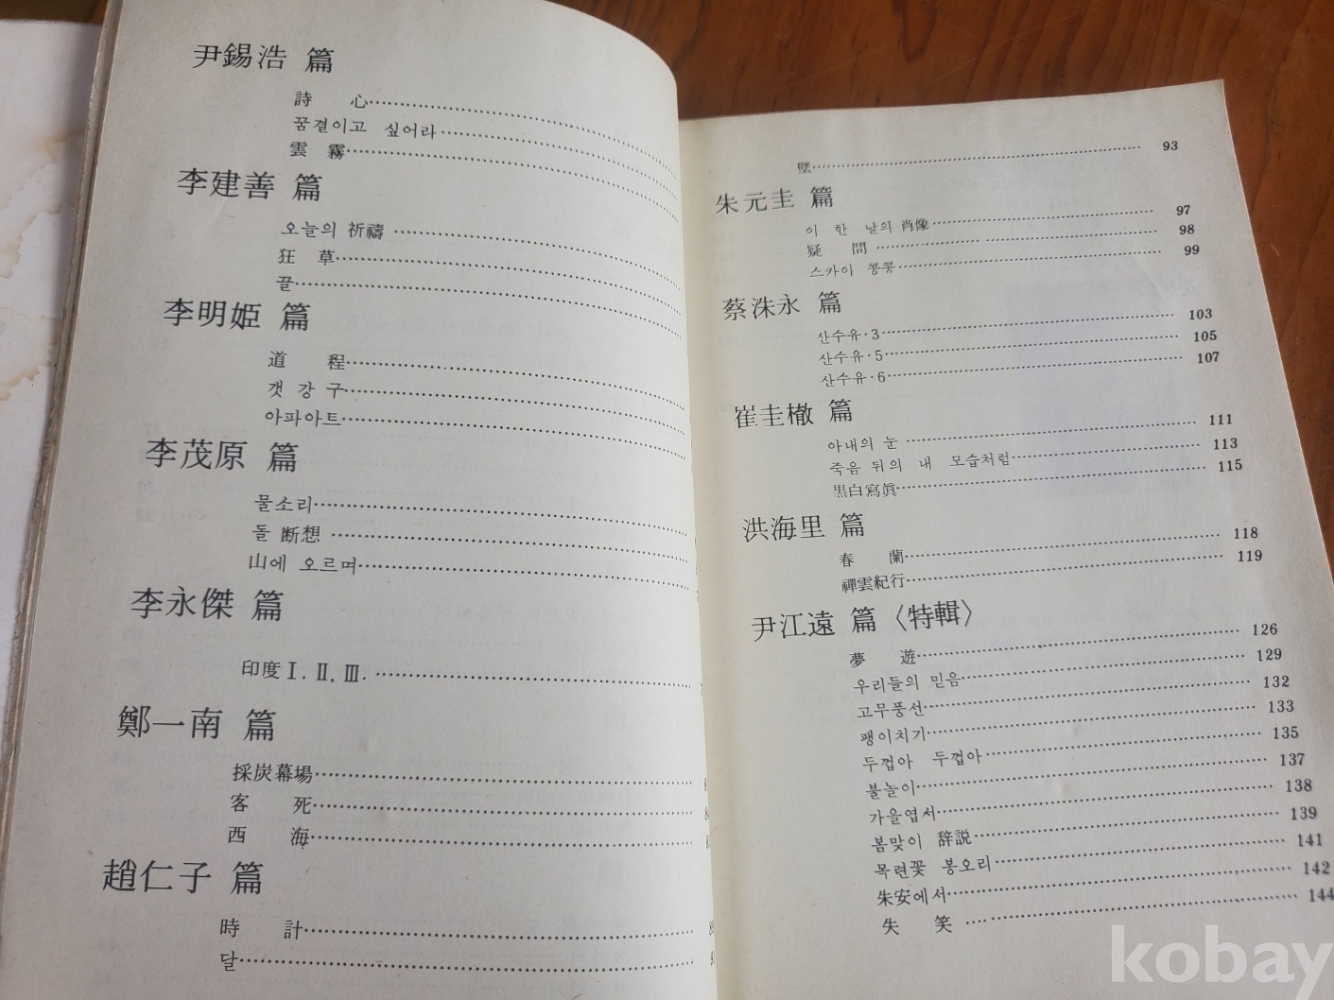 尹錫浩 篇
詩 心
꿈결이고 싶어라
雲霧
李建善 篇
오늘의 祈禱
狂草
끌
李明姫 篇
道程
갯강구
아파아트
李茂原 篇
물소리
돌 断想
山에 오르며
李永傑 篇
印度 Ⅰ. Ⅱ. Ⅲ.
鄭一南 篇
採炭幕場
客死
西海
趙仁子 篇
時計
달
壁 93
朱元圭 篇
이 한 날의 肖像 97
疑問 98
스카이 콩콩 99
蔡洙永 篇
산수유·3 103
산수유·5 105
산수유·6 107
崔圭橵 篇
아내의 눈 111
죽음 뒤의 내 모습처럼 113
黒白寫眞 115
洪海里 篇
春蘭 118
禪雲紀行 119
尹江遠 篇〈特輯〉
夢遊 126
우리들의 믿음 129
고무풍선 132
팽이치기 133
두껍아 두껍아 135
불놀이 137
가을엽서 138
봄맞이 辞説 139
목련꽃 봉오리 141
朱安에서 142
失笑 144
kobay